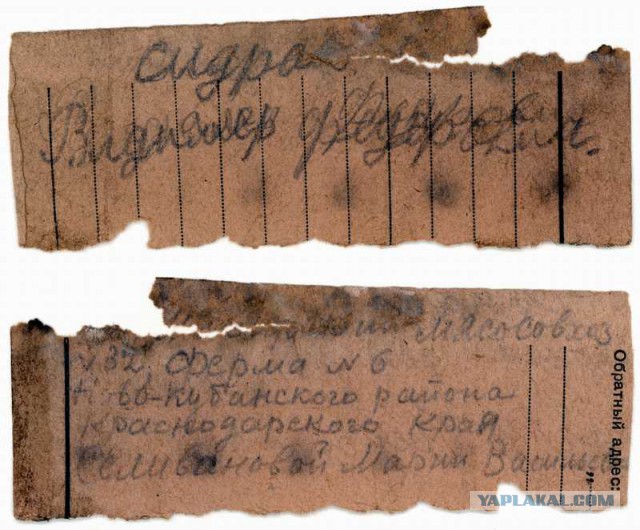 сидро
Владимер Федорович.
Мясосовхоз
№ 32. Ферма № 6
Ново-кубанского района
Краснодарского края
Селивановой Марии Василь
Обратный адрес:
YAPLAKAL.COM